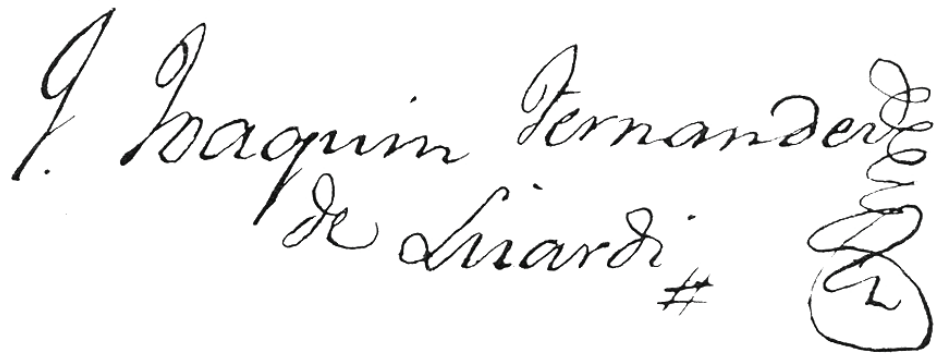 J. Joaquin Fernandez
de Lizardi